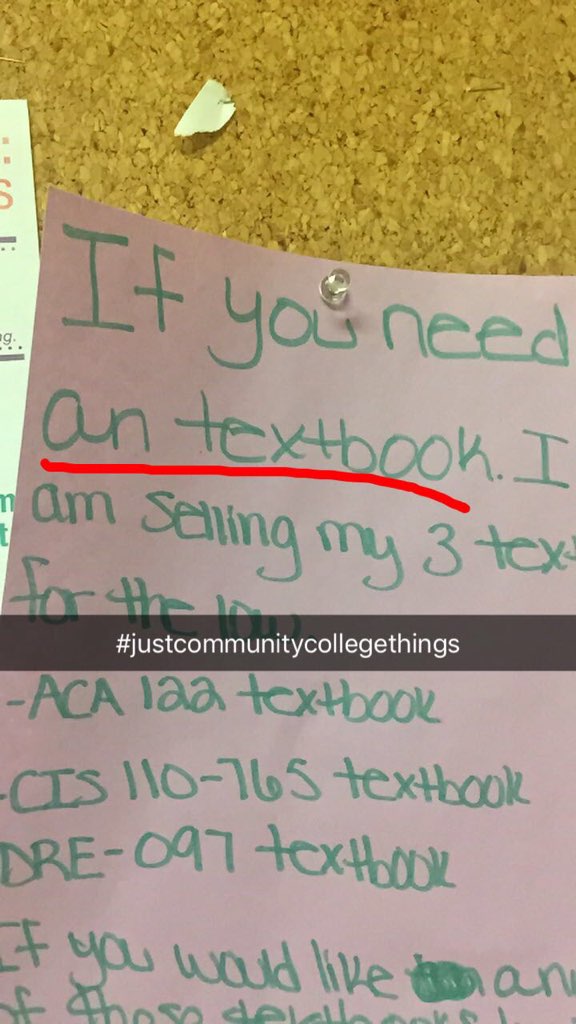 If you need
an textbook. I
am selling my 3 text
for the low
#justcommunitycollegethings
-ACA 122 textbook
-CIS 110-765 textbook
DRE-097 textbook
If you would like an
of those textbooks